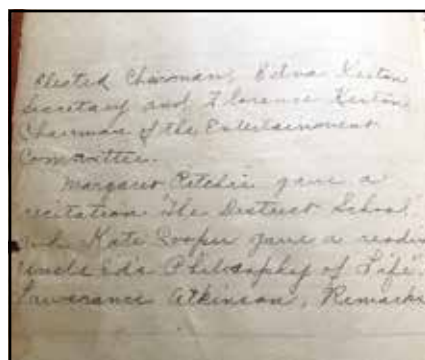 elected Chairman, Edna Keston
Secretary and Florence Keston
Chairman of the Entertainment
Committee.
Margaret Ritchie gave a
recitation "The District School"
and Kate Cooper gave a
Uncle Ed's Philosophy of Life".
Lawerance Atkinson, Remarks